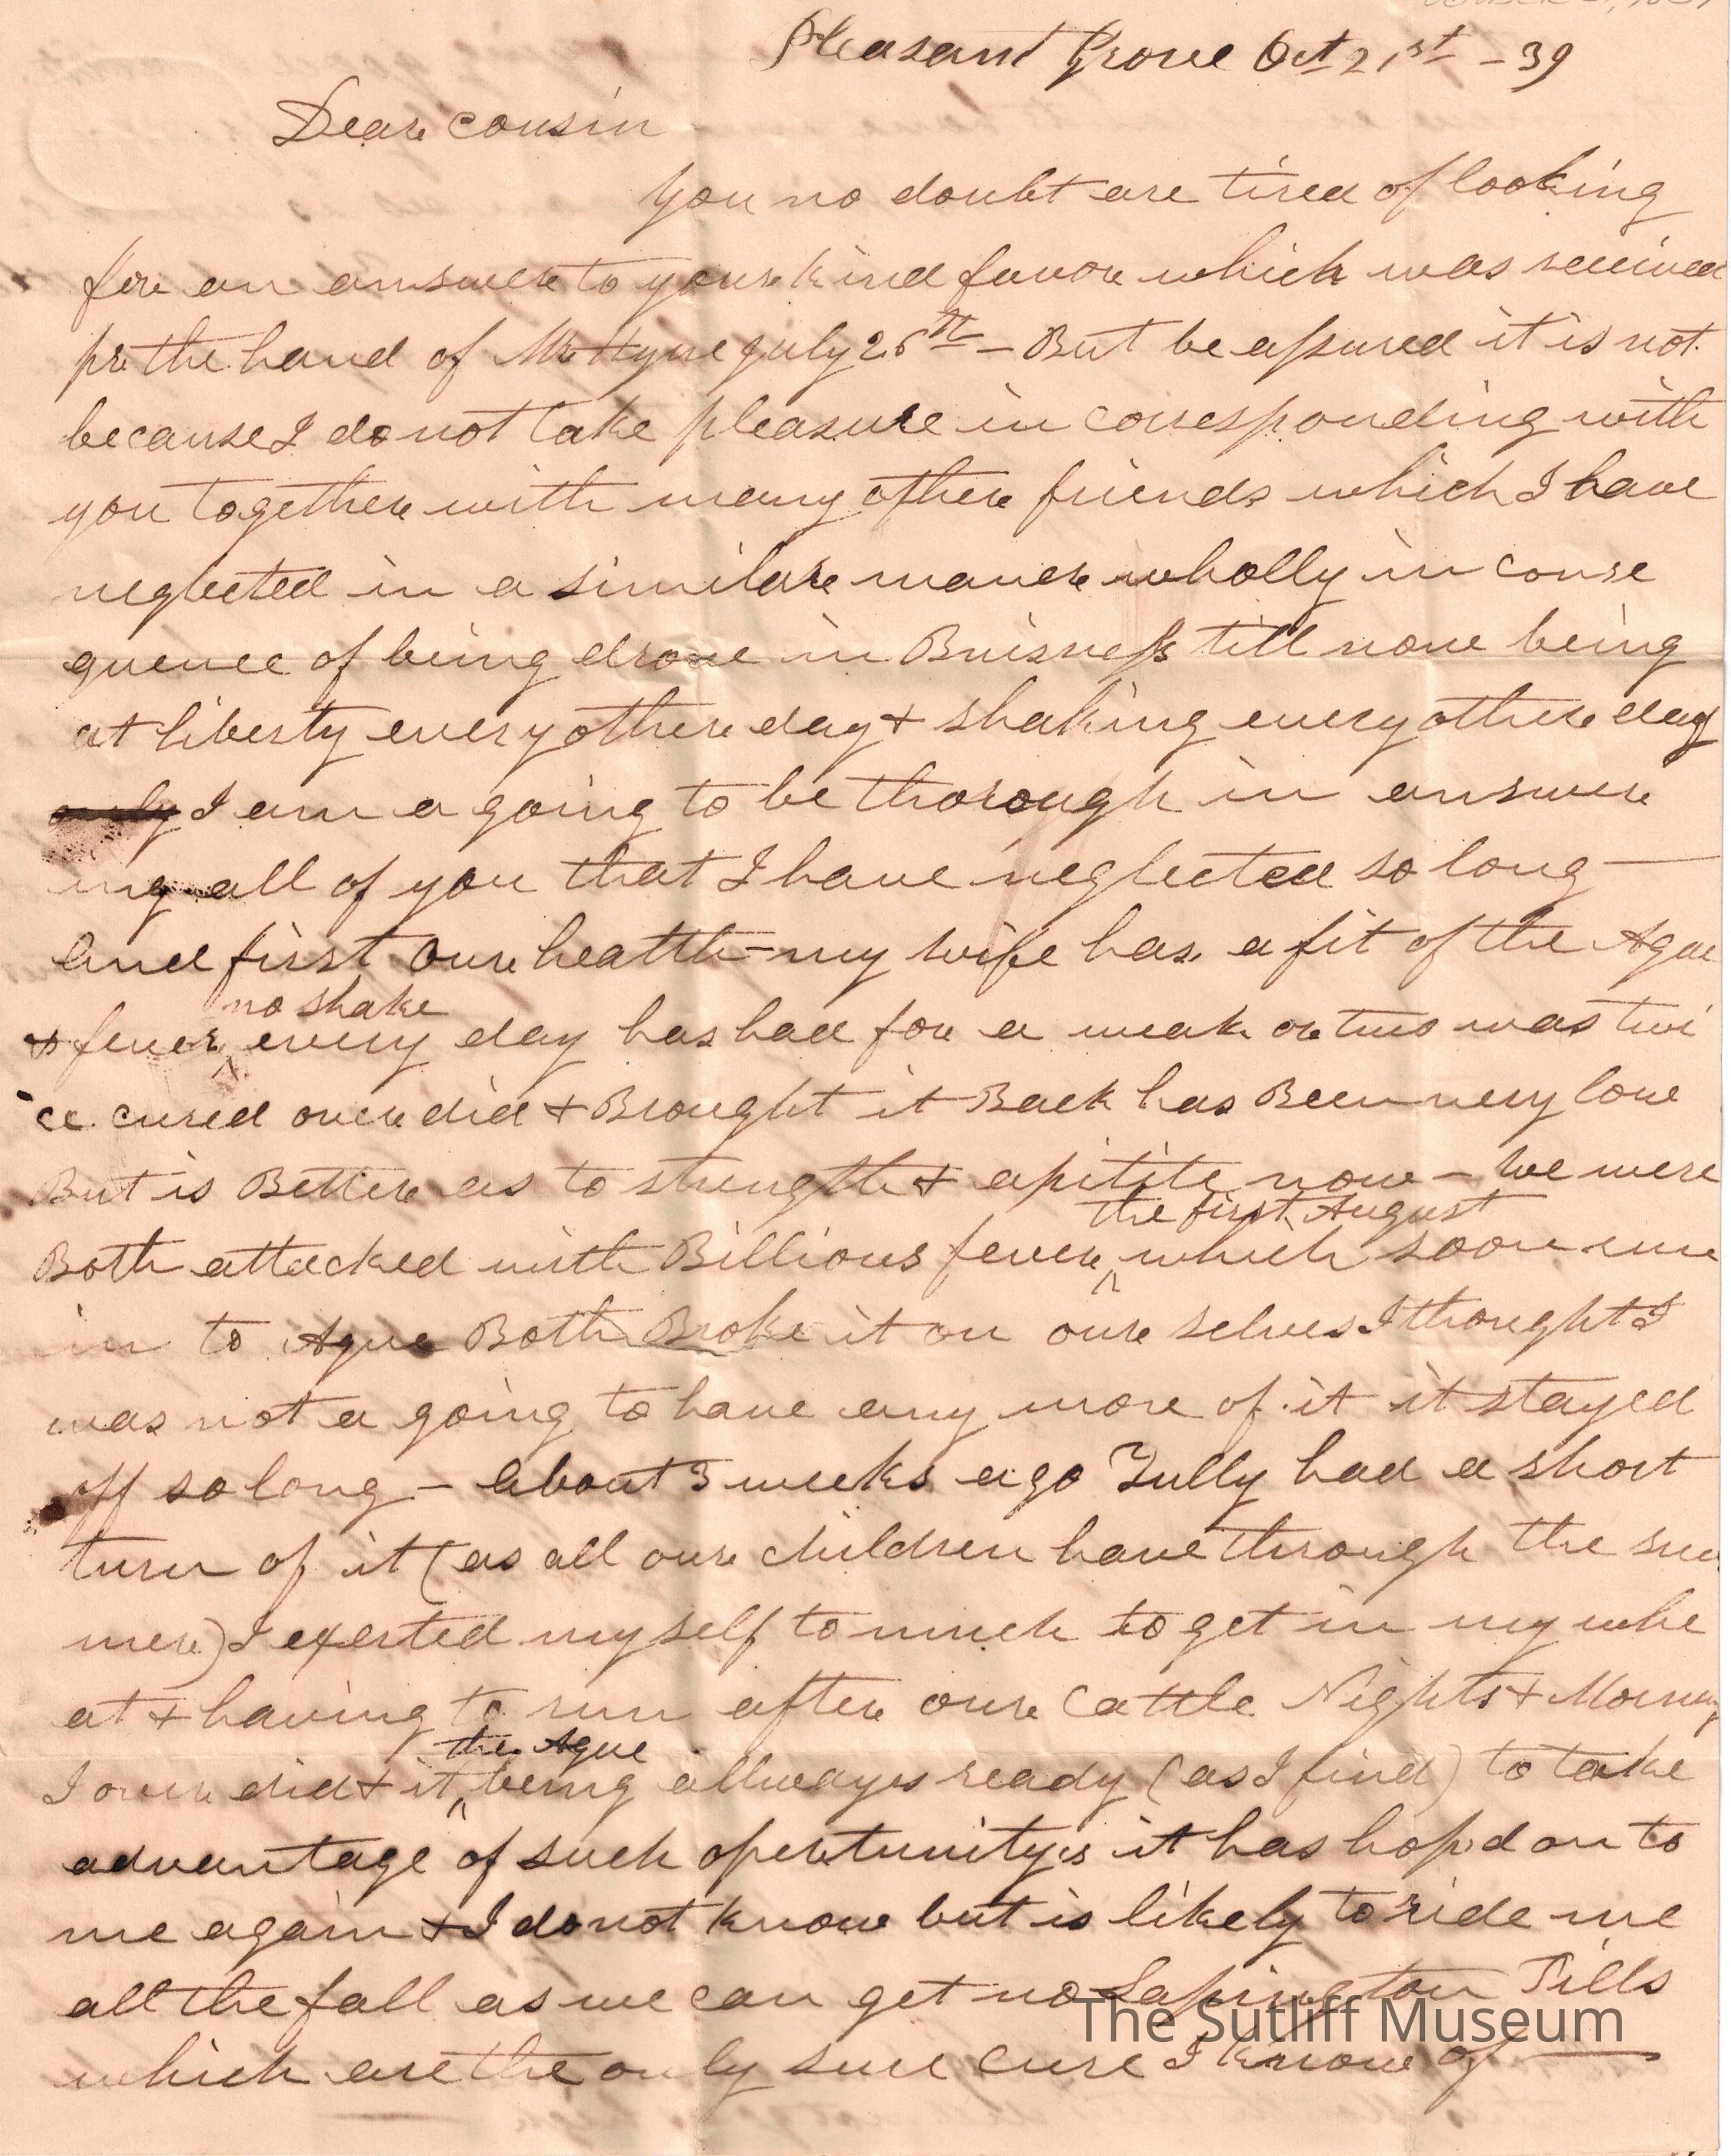 Pleasant Grove Oct 21st - 39
Dear cousin
You no doubt are tired of looking
for an answer to your kind favor which was received
pr the hand of Mr July 26th - But be assured it is not
because I do not take pleasure in corresponding with
you together with many other friends which I have
neglected in a similare maner wholly in conse
quence of being drove in Buisness till now being
at liberty every other day & shaking every other day
only I am a going to be thorough in answer
ing all of you that I have neglected so long —
And first our health - my wife has a fit of the Ague
no shake
& fever ^ every day has had for a weak or two was twi
ce cured over did & Brought it Back has Been very low
But is Better as to strength & apitite now - We were
the first August
Both attacked with Billious fever ^ which soon run
in to Ague Both Broke it on our selves I thought I
was not a going to have any more of it it stayed
off so long - About 3 weeks ago Tully had a short
turn of it (as all our children have through the sum
mer) I exerted myself to much to get in my whe
at & having to run after our Cattle Nights & Morning
the Ague
I over did & it ^ being allways ready (as I find) to take
advantage of such opertunitys it has hop'd on to
me again & I do not know but is likely to ride me
all the fall as we can get no Sapington Pills
which are the only sure cure I know of —
The Sutliff Museum